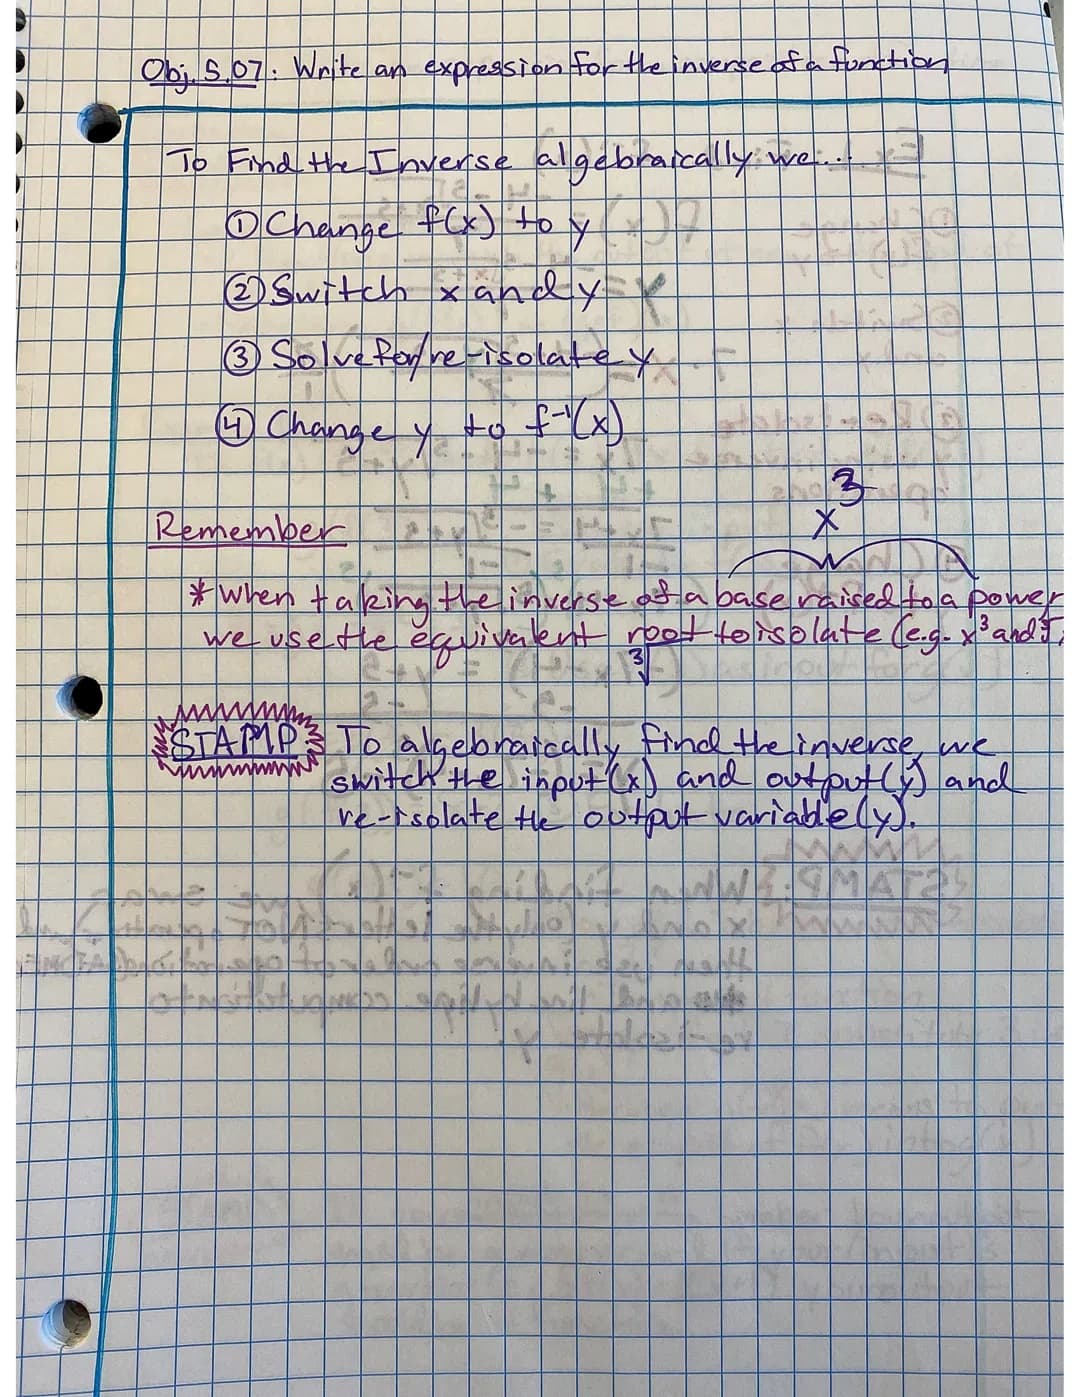 Obj. 5.07: Write an expression for the inverse of a function
To Find the Inverse algebraically we...
① Change f(x) to y
② Switch x and y
③ Solve for/re-isolate y
④ Change y to f⁻¹(x)
x³
Remember
* When taking the inverse of a base raised to a power
we use the equivalent root to isolate (e.g. x³ and
∛
STAMP: To algebraically find the inverse, we
switch the input (x) and output (y) and
re-isolate the output variable (y).